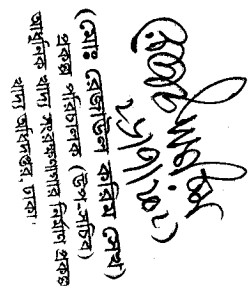 ২১/৩/২০২১
(মোঃ রেজাউল করিম শেখ)
প্রকল্প পরিচালক (উপ-সচিব)
আধুনিক খাদ্য সংরক্ষণাগার নির্মাণ প্রকল্প
খাদ্য অধিদপ্তর, ঢাকা।